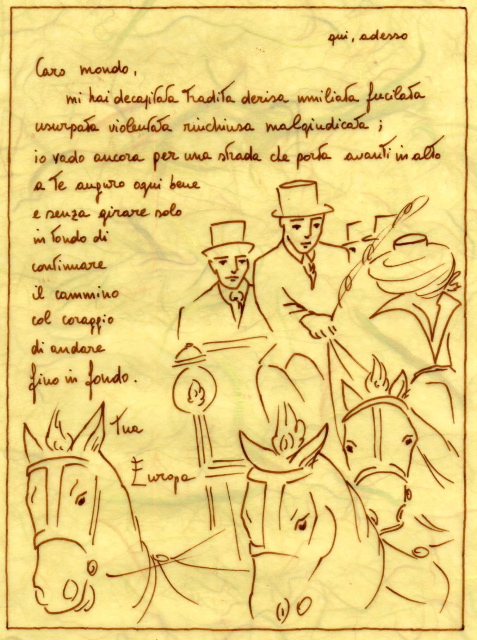 qui, adesso
Caro mondo,
mi hai decapitata tradita derisa umiliata fucilata
usurpata violentata rinchiusa malgiudicata ;
io vado ancora per una strada che porta avanti in alto
a Te auguro ogni bene
e senza girare solo
in tondo di
continuare
il cammino
col coraggio
di andare
fino in fondo.
Tua
Europa